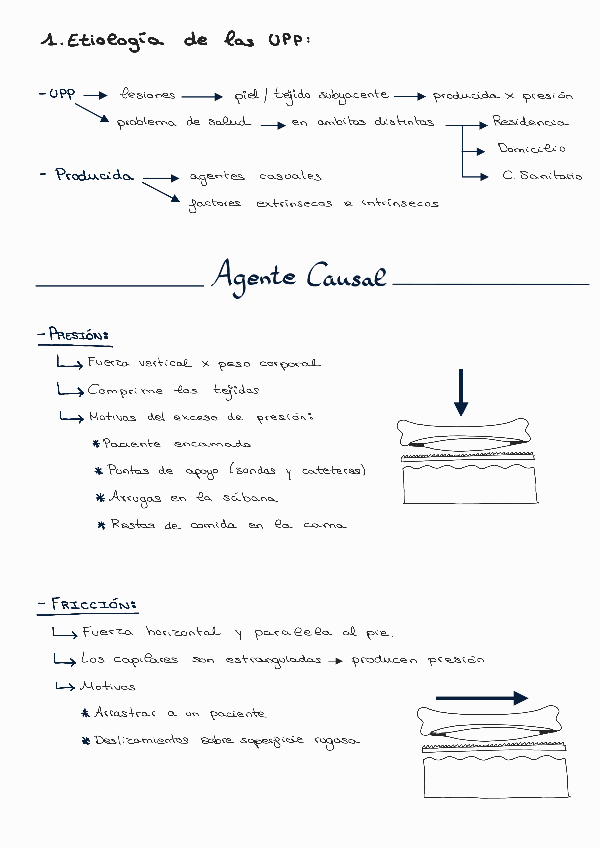 1. Etiología de las UPP:
- UPP → lesiones → piel / tejido subyacente → producida x presión
problema de salud → en ambitos distintos → Residencia
Domicilio
C. Sanitario
- Producida → agentes casuales
factores extrínsecos e intrínsecos
Agente Causal
- PRESIÓN:
Fuerza vertical x peso corporal
Comprime los tejidos
Motivos del exceso de presión:
* Paciente encamado
* Puntos de apoyo (sondas y cateteres)
* Arrugas en la sábana
* Restos de comida en la cama
- FRICCIÓN:
Fuerza horizontal y paralela al pie.
Los capilares son estrangulados → producen presión
Motivos
* Arrastrar a un paciente
* Deslizamientos sobre superficie rugosa